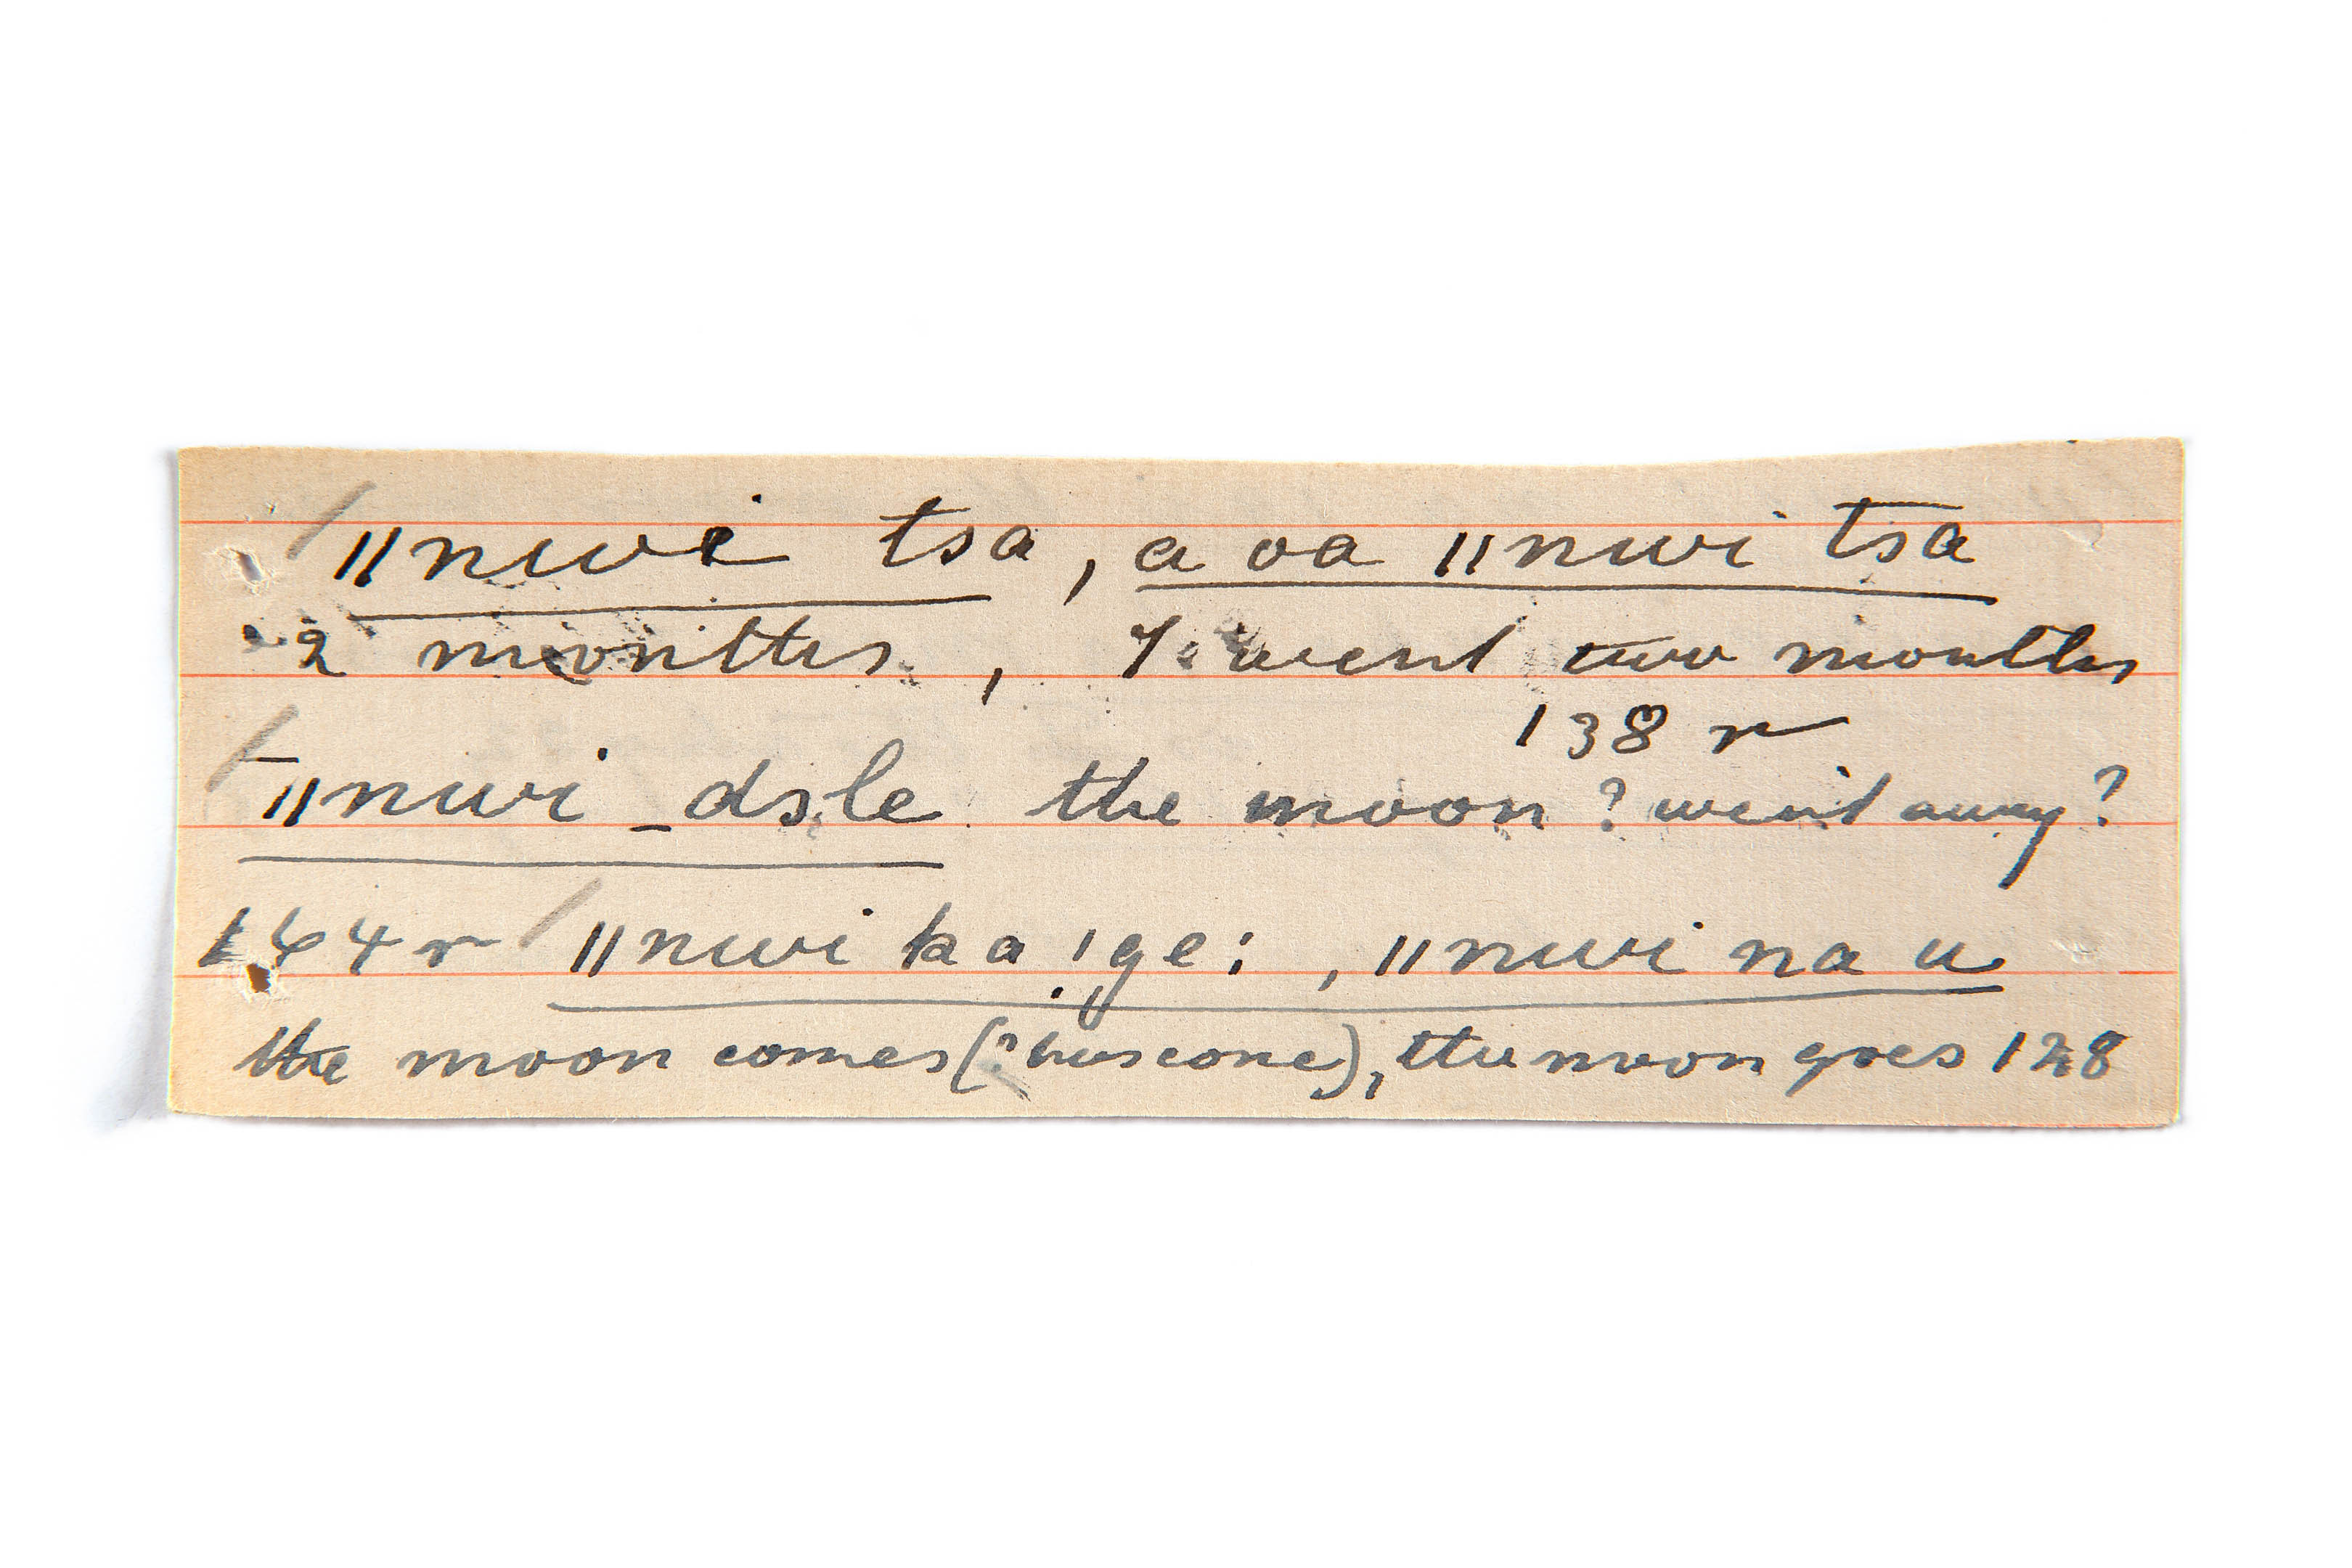 ǁnwi tsa, a oa ǁnwi tsa
2 months, I went two months
138 r
ǁnwi _dsle the moon ? went away?
144 r ǁnwi ka ǃge: , ǁnwi na u
the moon comes (? has come), the moon goes 128